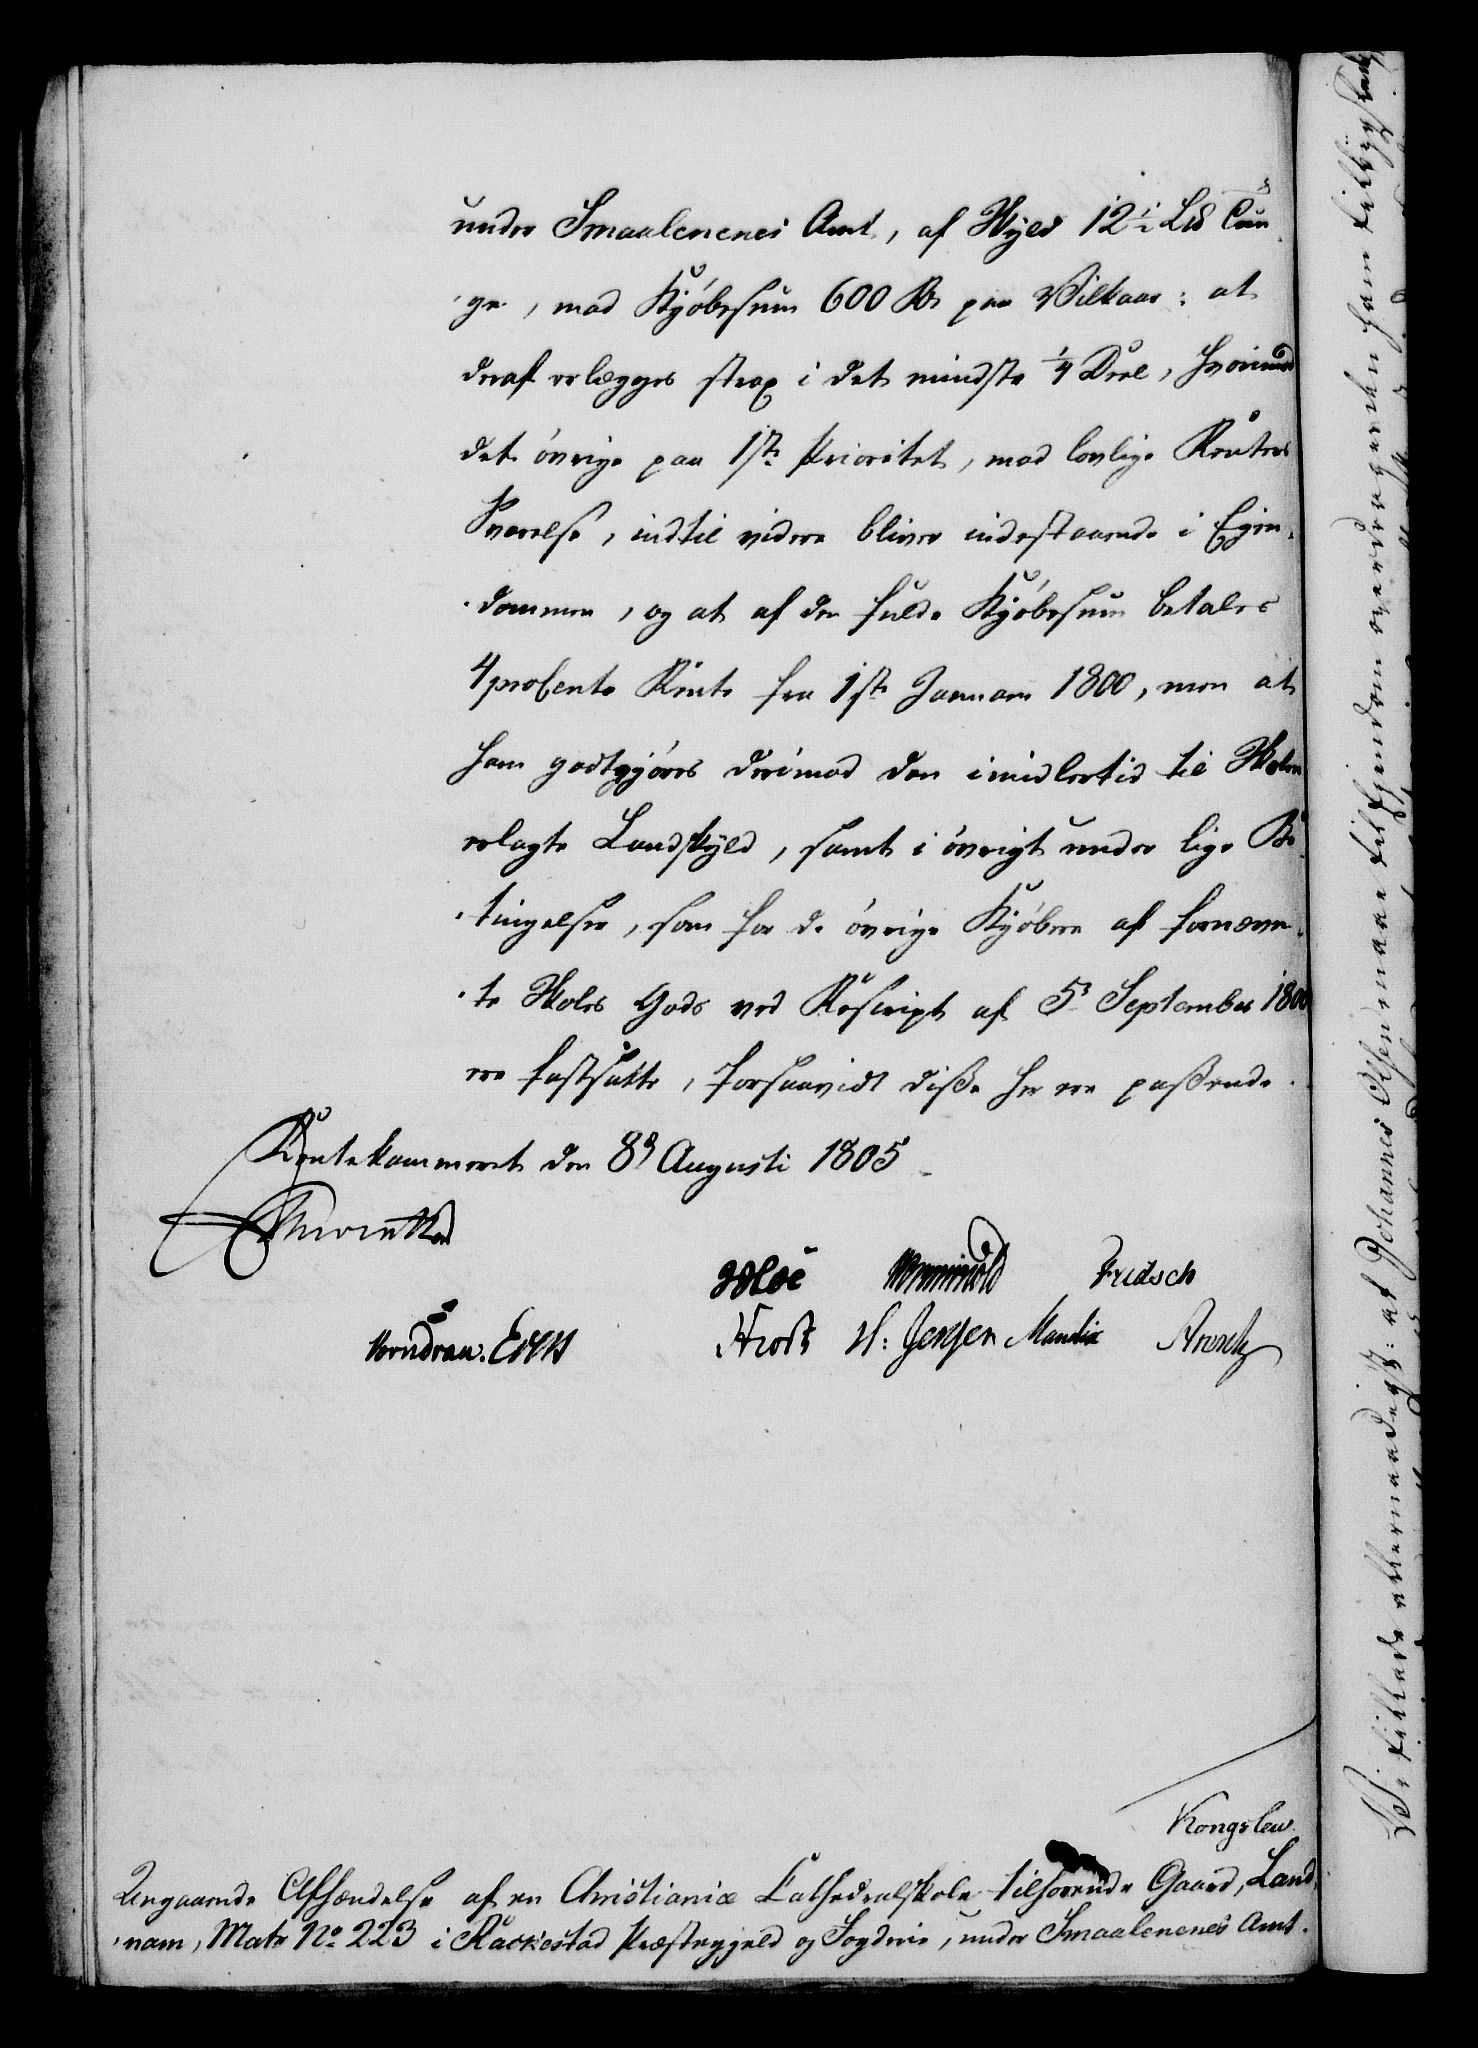 under Smaalenenes Amt, af Skyld 12½ L℔ Tun
ge, mod Kjöbesum 600 Rd paa Vilkaar: at
deraf erlægges strax i det mindste ¼ Deel, hvorimod
det övrige paa 1ste Prioritet, mod lovlige Renters
Svarelse, indtil videre bliver indestaaende i Eien-
dommen, og at af den fulde Kjöbesum betales
4 proCento Rente fra 1ste Januarii 1800, men at
ham godtgjöres derimod den imidlertid til Skolen
erlagte Landskyld, samt i övrigt under lige Be
tingelser, som for de övrige Kjöbere af fornævn-
te Skoles Gods ved Rescript af 5 September 1800
ere fastsatte, forsaavidt disse her ere passende.
Rentekammeret den 8 Augusti 1805
Wormskiold Fridsch
H: Jensen Manthix
Kongslew.
Angaaende Afhændelse af en Christianiæ Cathedralskole tilhörende Gaard, Land-
nam, Matr No 223 i Rackestad Præstegjeld og Fogderie, under Smaalenenes Amt.
Vi tillade allernaadigst: at Johannes Olsen maae til Eiendom overdrages den ham tilbyxlede